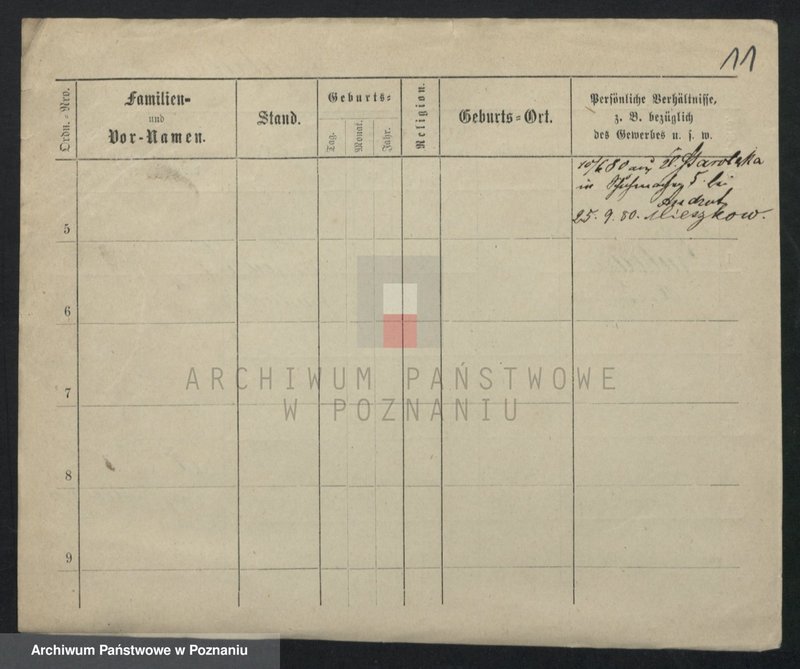 11
Ordn.-Nro.
Familien-
und
Vor-Namen.
Stand.
Geburts-
Tag.
Monat.
Jahr.
Religion.
Geburts-Ort.
Persönliche Verhältnisse,
z. B. bezüglich
des Gewerbes u. s. w.
10/6 80 aus
in
25. 9. 80. Mieszkow.
5
6
7
8
9
ARCHIWUM PAŃSTWOWE
W POZNANIU
Archiwum Państwowe w Poznaniu